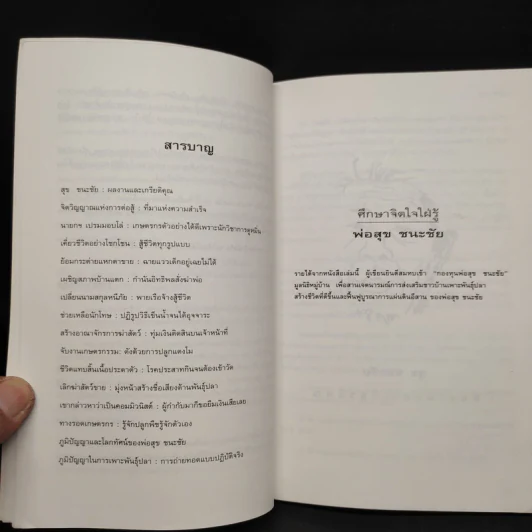 สารบาญ
สุข ชนะชัย : ผลงานและเกรียติคุณ
จิตวิญญาณแห่งการต่อสู้ : ที่มาแห่งความสำเร็จ
นายกฯ เปรมมอบโล่ : เกษตรกรตัวอย่างได้ดีเพราะนักวิชาการดูหมิ่น
เคี่ยวชีวิตอย่างโชกโชน : สู้ชีวิตทุกรูปแบบ
ย้อมกระด่างแหกตาชาย : ฉายแววเด็กอยู่เฉยไม่ได้
เผชิญสภาพบ้านแตก : กำนันอิทธิพลสั่งฆ่าพ่อ
เปลี่ยนนามสกุลหนีภัย : พายเรือจ้างสู้ชีวิต
ช่วยเหลือนักโทษ : ปฏิรูปวิธีเข็นน้ำจนได้ดุจจาระ
สร้างอาณาจักรการฆ่าสัตว์ : ทุ่มเงินติดสินบนเจ้าหน้าที่
จับงานเกษตรกรรม : ดังด้วยการปลูกแตงโม
ชีวิตแทบสิ้นเนื้อประดาตัว : โรคประสาทกินจนต้องเข้าวัด
เลิกฆ่าสัตว์ขาย : มุ่งหน้าสร้างชื่อเสียงด้านพันธุ์ปลา
เขากล่าวหาว่าเป็นคอมมิวนิสต์ : ผู้กำกับมาก็ขอยืมเงินเสียเลย
ทางรอดเกษตรกร : รู้จักปลูกพืชรู้จักตัวเอง
ภูมิปัญญาและโลกทัศน์ของพ่อสุข ชนะชัย
ภูมิปัญญาในการเพาะพันธุ์ปลา : การถ่ายทอดแบบปฏิบัติจริง
ศึกษาจิตใจใฝ่รู้
พ่อสุข ชนะชัย
รายได้จากหนังสือเล่มนี้ ผู้เขียนยินดีสมทบเข้า "กองทุนพ่อสุข ชนะชัย"
มูลนิธิหมู่บ้าน เพื่อสานเจตนารมณ์การส่งเสริมชาวบ้านเพาะพันธุ์ปลา
สร้างชีวิตที่ดีขึ้นและฟื้นฟูบูรณาการแผ่นดินอีสาน ของพ่อสุข ชนะชัย